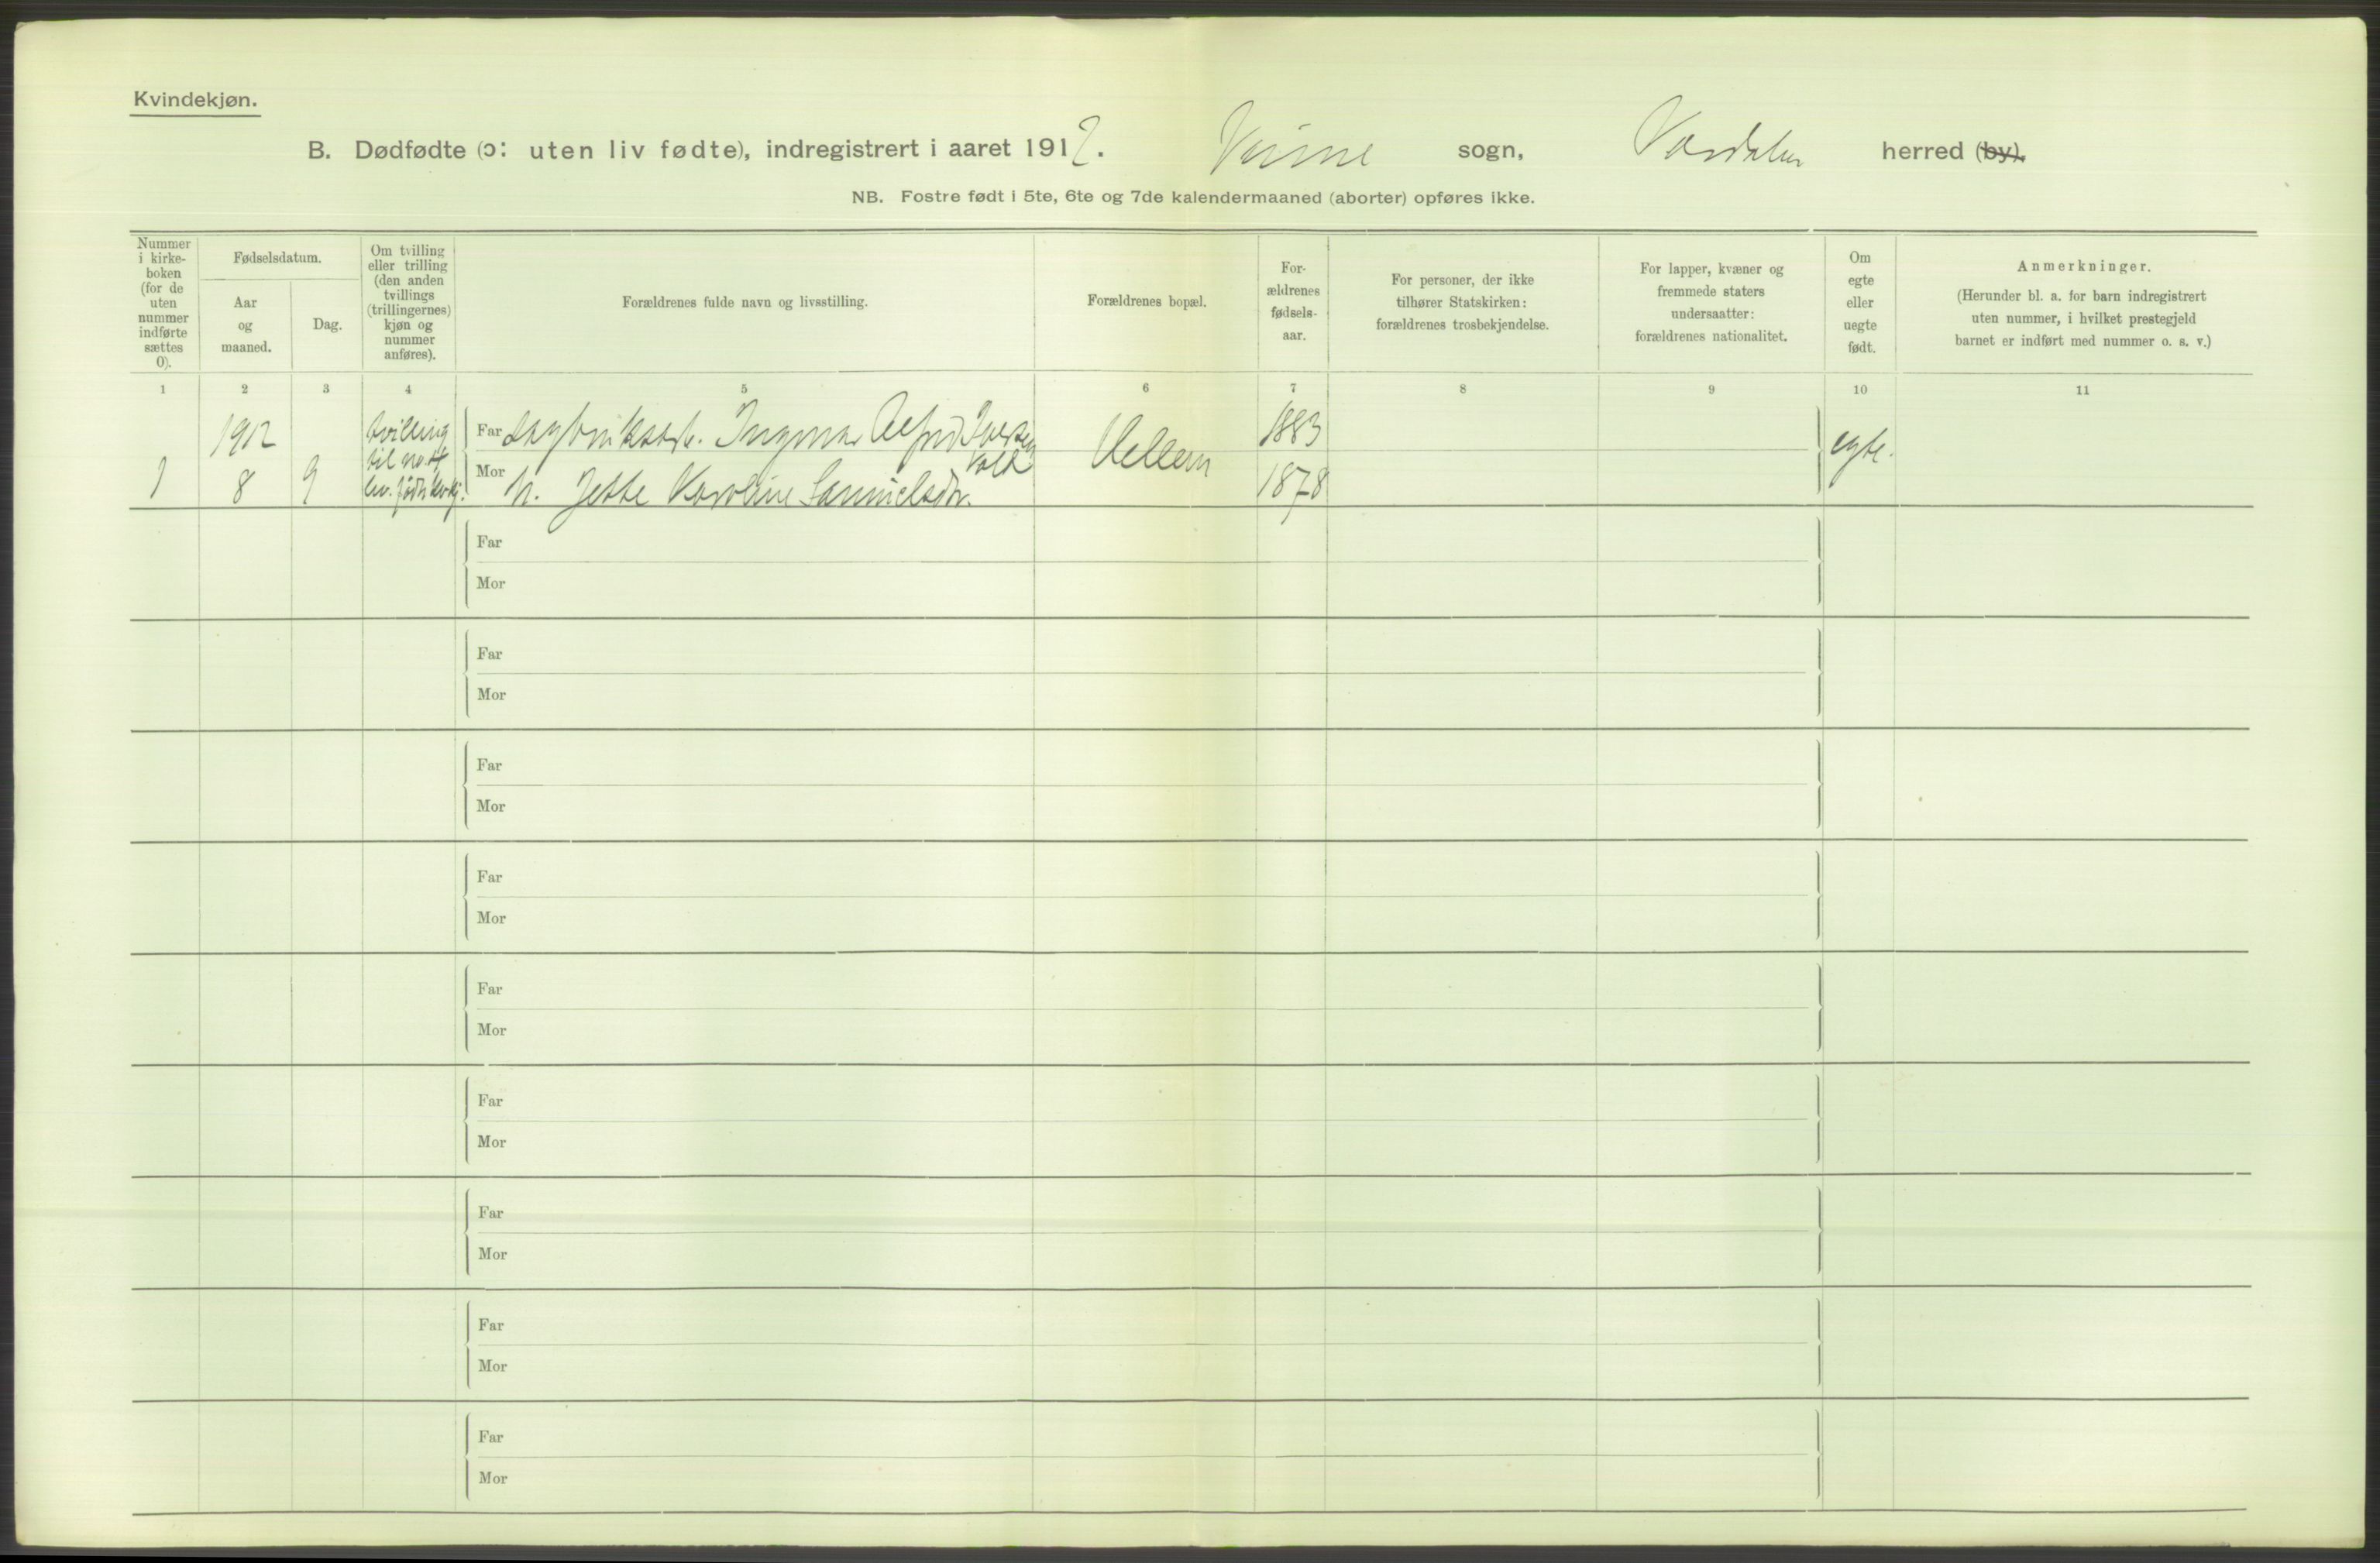 Kvindekjøn.
B. Dødfødte (ɔ: uten liv fødte), indregistrert i aaret 1912. Vinne sogn, Værdalen herred (by).
NB. Fostre født i 5te, 6te og 7de kalendermaaned (aborter) opføres ikke.
Nummer
i kirke-
boken
(for de
uten
nummer
indførte
sættes
0).
Fødselsdatum.
Aar
og
maaned.
Dag.
Om tvilling
eller trilling
(den anden
tvillings
(trillingernes)
kjøn og
nummer
anføres).
Forældrenes fulde navn og livsstilling.
Forældrenes bopæl.
For-
ældrenes
fødsels-
aar.
For personer, der ikke
tilhører Statskirken:
forældrenes trosbekjendelse.
For lapper, kvæner og
fremmede staters
undersaatter:
forældrenes nationalitet.
Om
egte
eller
uegte
født.
Anmerkninger.
(Herunder bl. a. for barn indregistrert
uten nummer, i hvilket prestegjeld
barnet er indført med nummer o. s. v.)
1 2 3 4 5 6 7 8 9 10 11
1912
1 8 9
tvilling
til no
lev. født kvkj.
Far Ingmar Alfred
Mor h. Jette Karoline Samuelsdtr.
1883
1878
egte.
Far
Mor
Far
Mor
Far
Mor
Far
Mor
Far
Mor
Far
Mor
Far
Mor
Far
Mor
Far
Mor